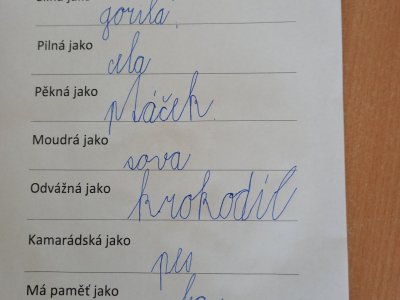 gorila
Pilná jako
Pěkná jako
ptáček
Moudrá jako
sova
Odvážná jako
krokodil
Kamarádská jako
pes
Má paměť jako